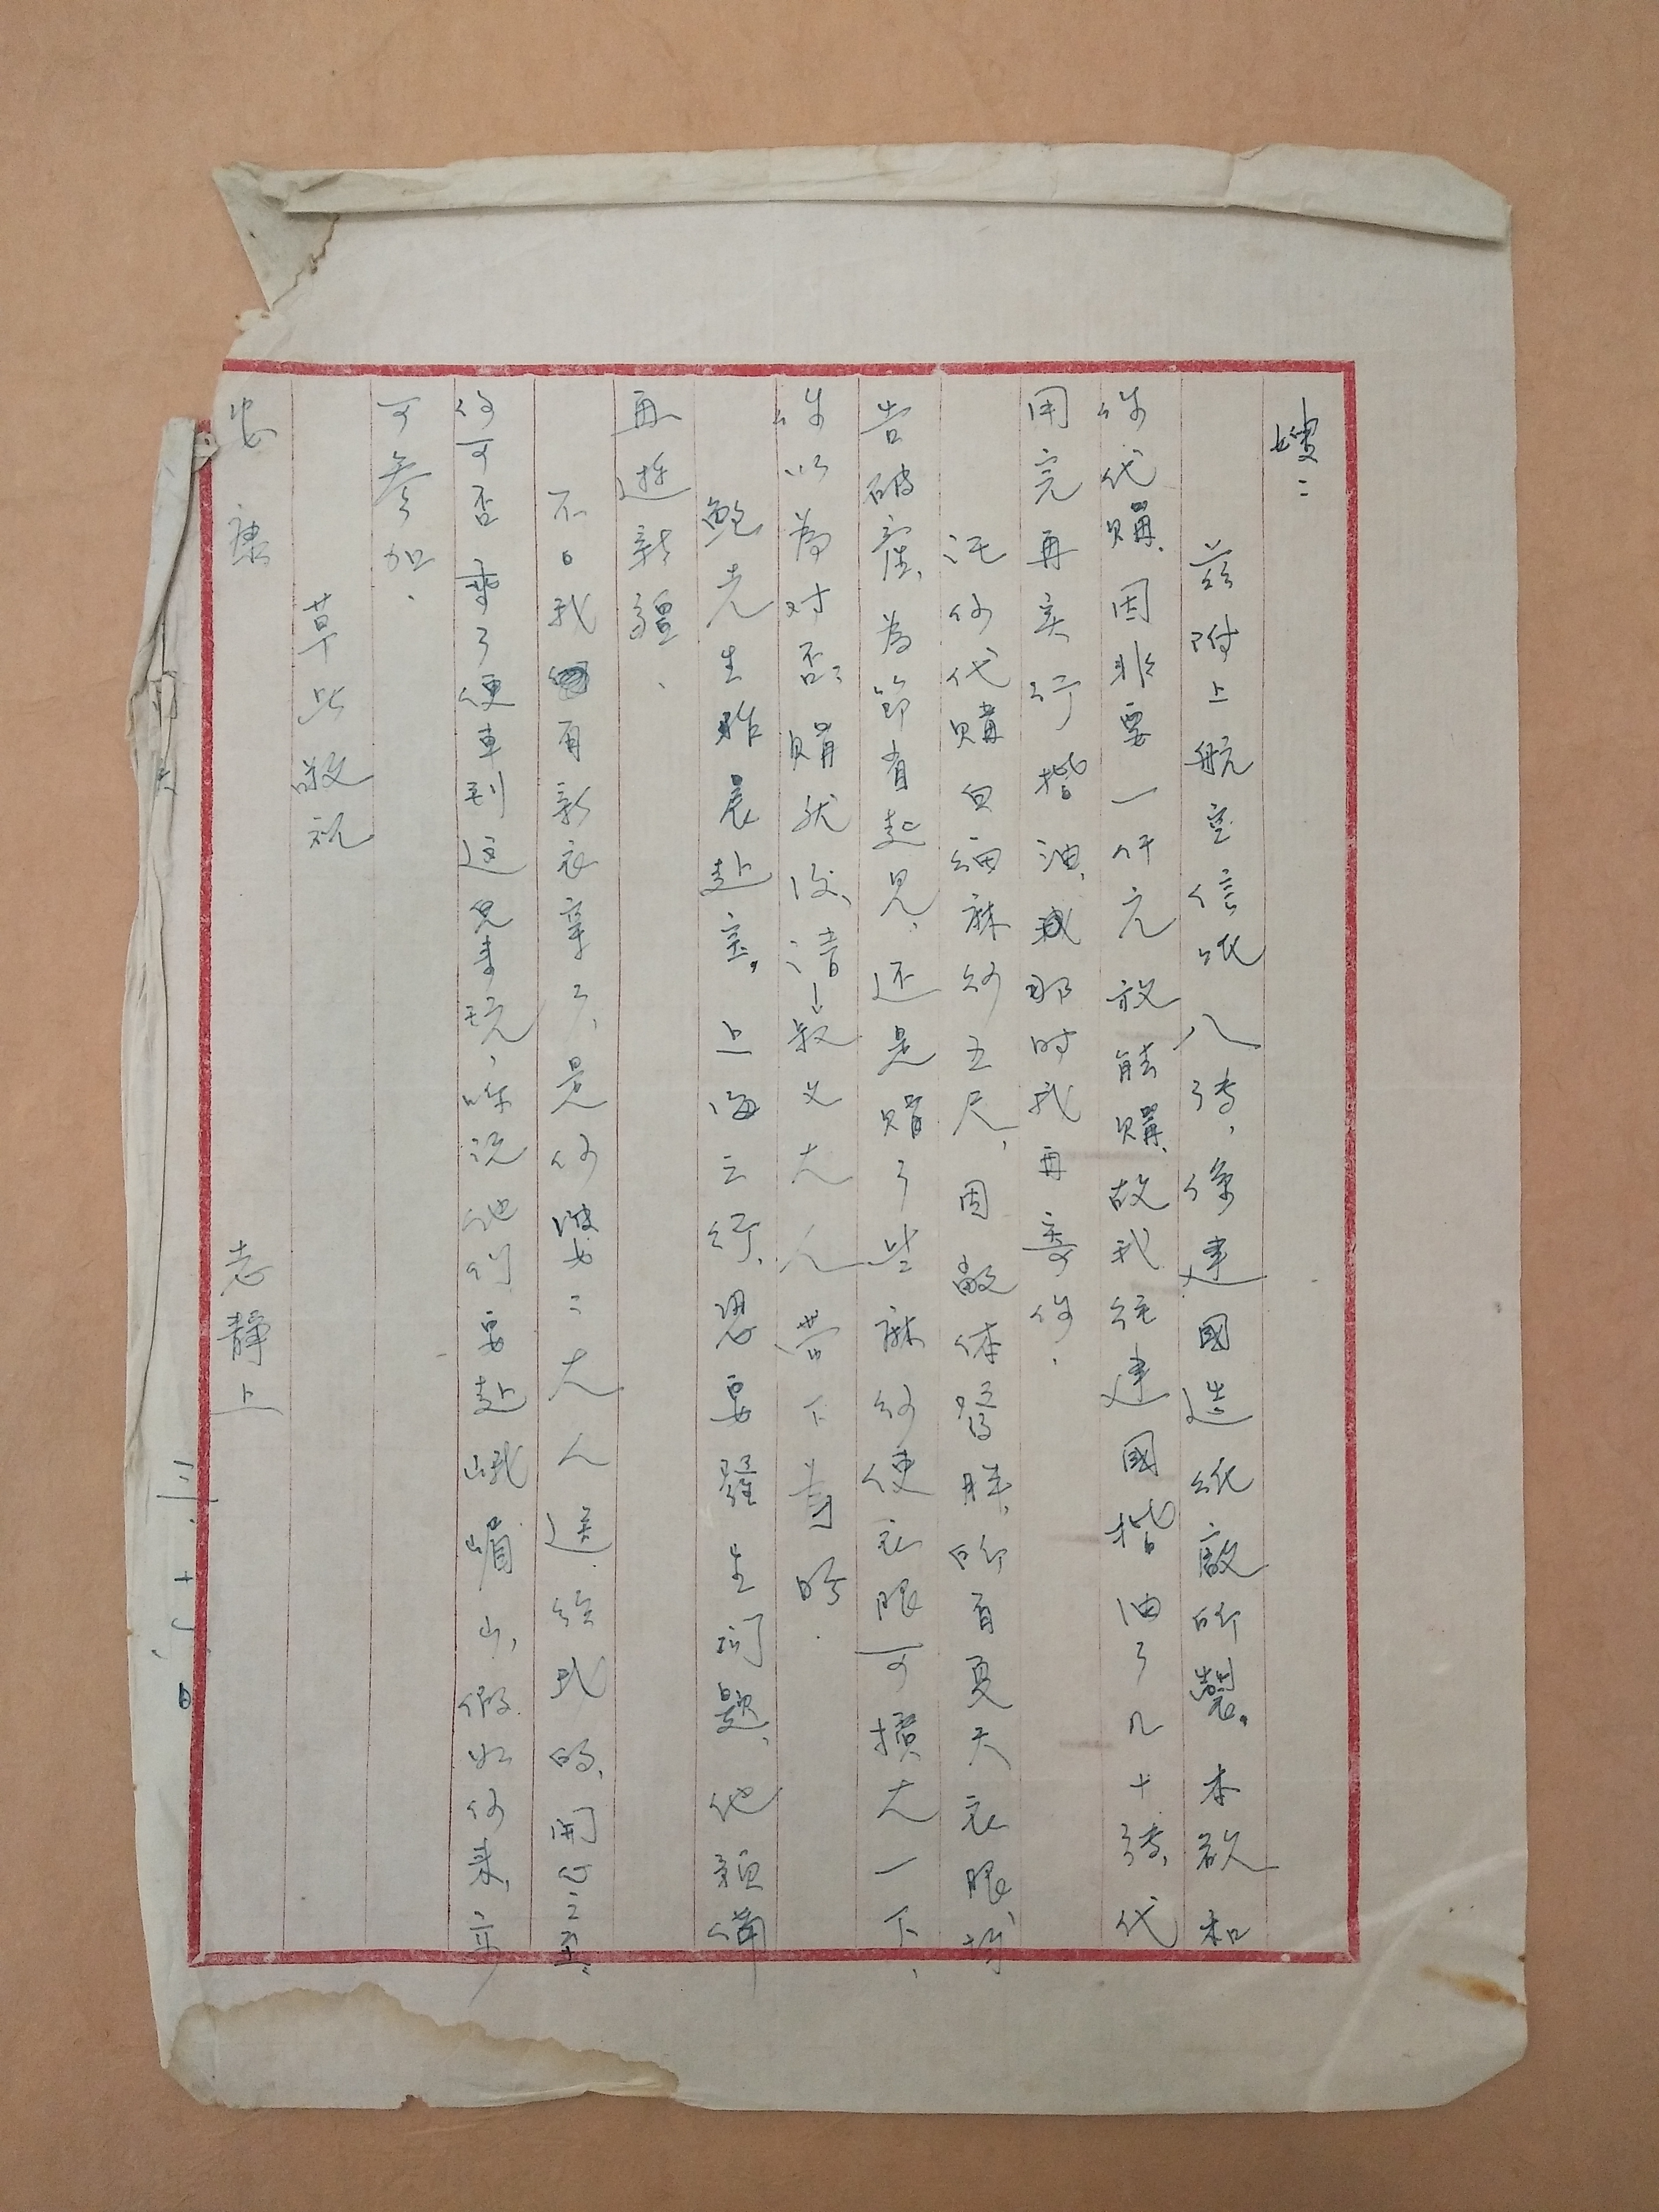 嫂:
茲附上航空信紙八張,係建國造紙廠所製。本欲和
你代購,因非要一仟元放能購,故我統建國揩油了几十張,代
用完再实行揩油,或那时我再寄你.
託你代購白細麻紗五尺,因敝体發胖,所有夏天衣服均
告破產,為節省起見,还是購了些麻紗使衣服可擴大一下,
你以為对否?購就後,請叔父大人帶下為盼.
鮑先生昨晨赴京。上海之行,恐要發生问題,他預備
再遊新疆、
不日我有新衣穿了,是你双二大人送给我的,開心之至.
你可否乘了便車到这兒来玩,味说他们要赴峨嵋山,假如你来,亦
可参加.
草此敬祝
安康 志靜上
日